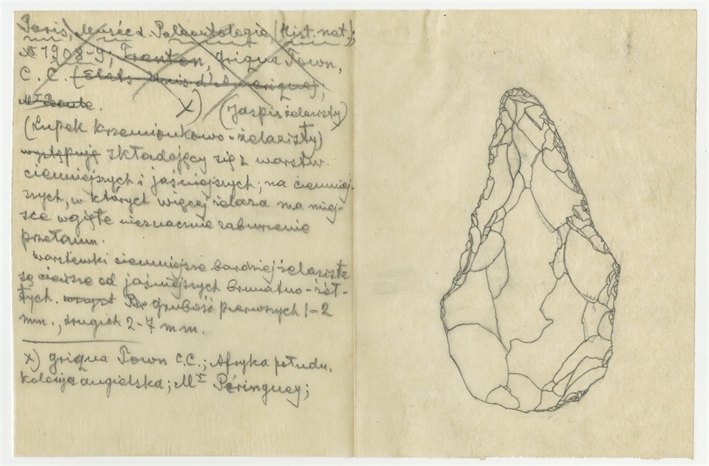 Paris, Musée d. Paléontologie (Hist. nat.);
№ 1908-9; Trenton, Griqua Town,
C. C. (Etats Unis d'Amerique),
Mr
x) (Jaspis żelazisty)
(Łupek krzemionkowo-żelazisty)
występują składający się z warstw
ciemniejszych i jaśniejszych; na ciemniej-
szych, w których więcej żelaza ma miej-
sce wgięte nieznacznie zaburzenie
przełamu.
Warstewki ciemniejsze bardziej żelaziste
są cieńsze od jaśniejszych brunatno-żół-
tych. Do grubość pierwszych 1-2
mm., drugich 2-7 mm.
x) Griqua Town C.C.; Afryka połudn.
kolonja angielska; Mr Péringuey;